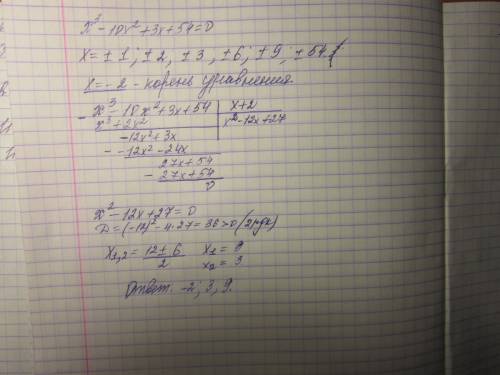 x³ - 10x² + 3x + 54 = 0
x = ± 1; ± 2, ± 3, ± 6; ± 9; ± 54
x = - 2 - корень уравнения.
- x³ - 10x² + 3x + 54 | x + 2
x³ + 2x² | x² - 12x + 27
-12x² + 3x
- -12x² - 24x
27x + 54
- 27x + 54
0
x² - 12x + 27 = 0
D = (-12)² - 4·27 = 36 > 0 (2 рдк)
x₁,₂ = (12 ± 6)/2 x₁ = 9
x₂ = 3
Ответ. -2; 3, 9.